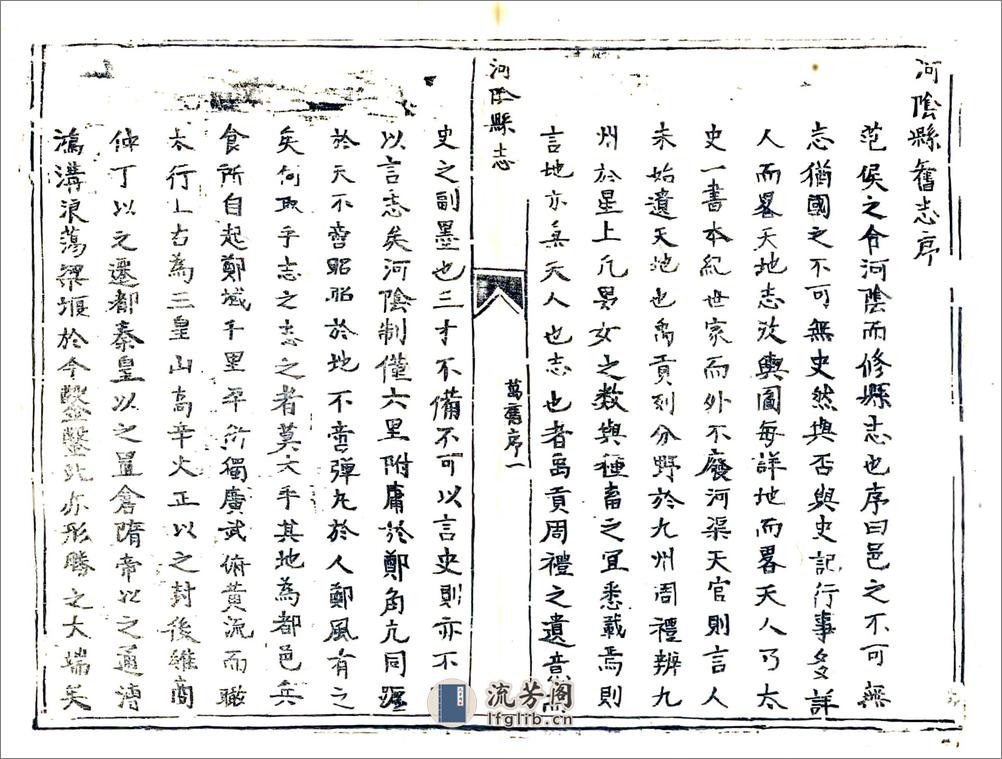 河陰縣舊志序
范侯之令河陰而修縣志也序曰邑之不可無
志猶國之不可無史然與否與史記行事多詳
人而畧天地志攷輿圖每詳地而畧天人乃太
史一書本紀世家而外不廢河渠天官則言人
未始遺天地也禹貢列分野於九州周禮辨九
州於星土凡男女之数與種畜之宜悉載焉則
言地亦兼天人也志也者禹貢周禮之遺意而
河陰縣志
萬舊序一
史之副墨也三才不備不可以言史則亦不
以言志矣河陰制僅六里附庸於鄭角亢同躔
於天不啻昭昭於地不啻彈丸於人鄭風有之
矣何取乎志之志之者莫大乎其地為都邑兵
食所自起鄭域千里平衍獨廣武俯黄流而瞰
太行上古為三皇山高辛火正以之封後雒商
仲丁以之遷都秦皇以之置倉隋帝以之通漕
鴻溝浪蕩梁堰於今鑿鑿此亦形勝之大端矣
流芳阁
lfglib.cn